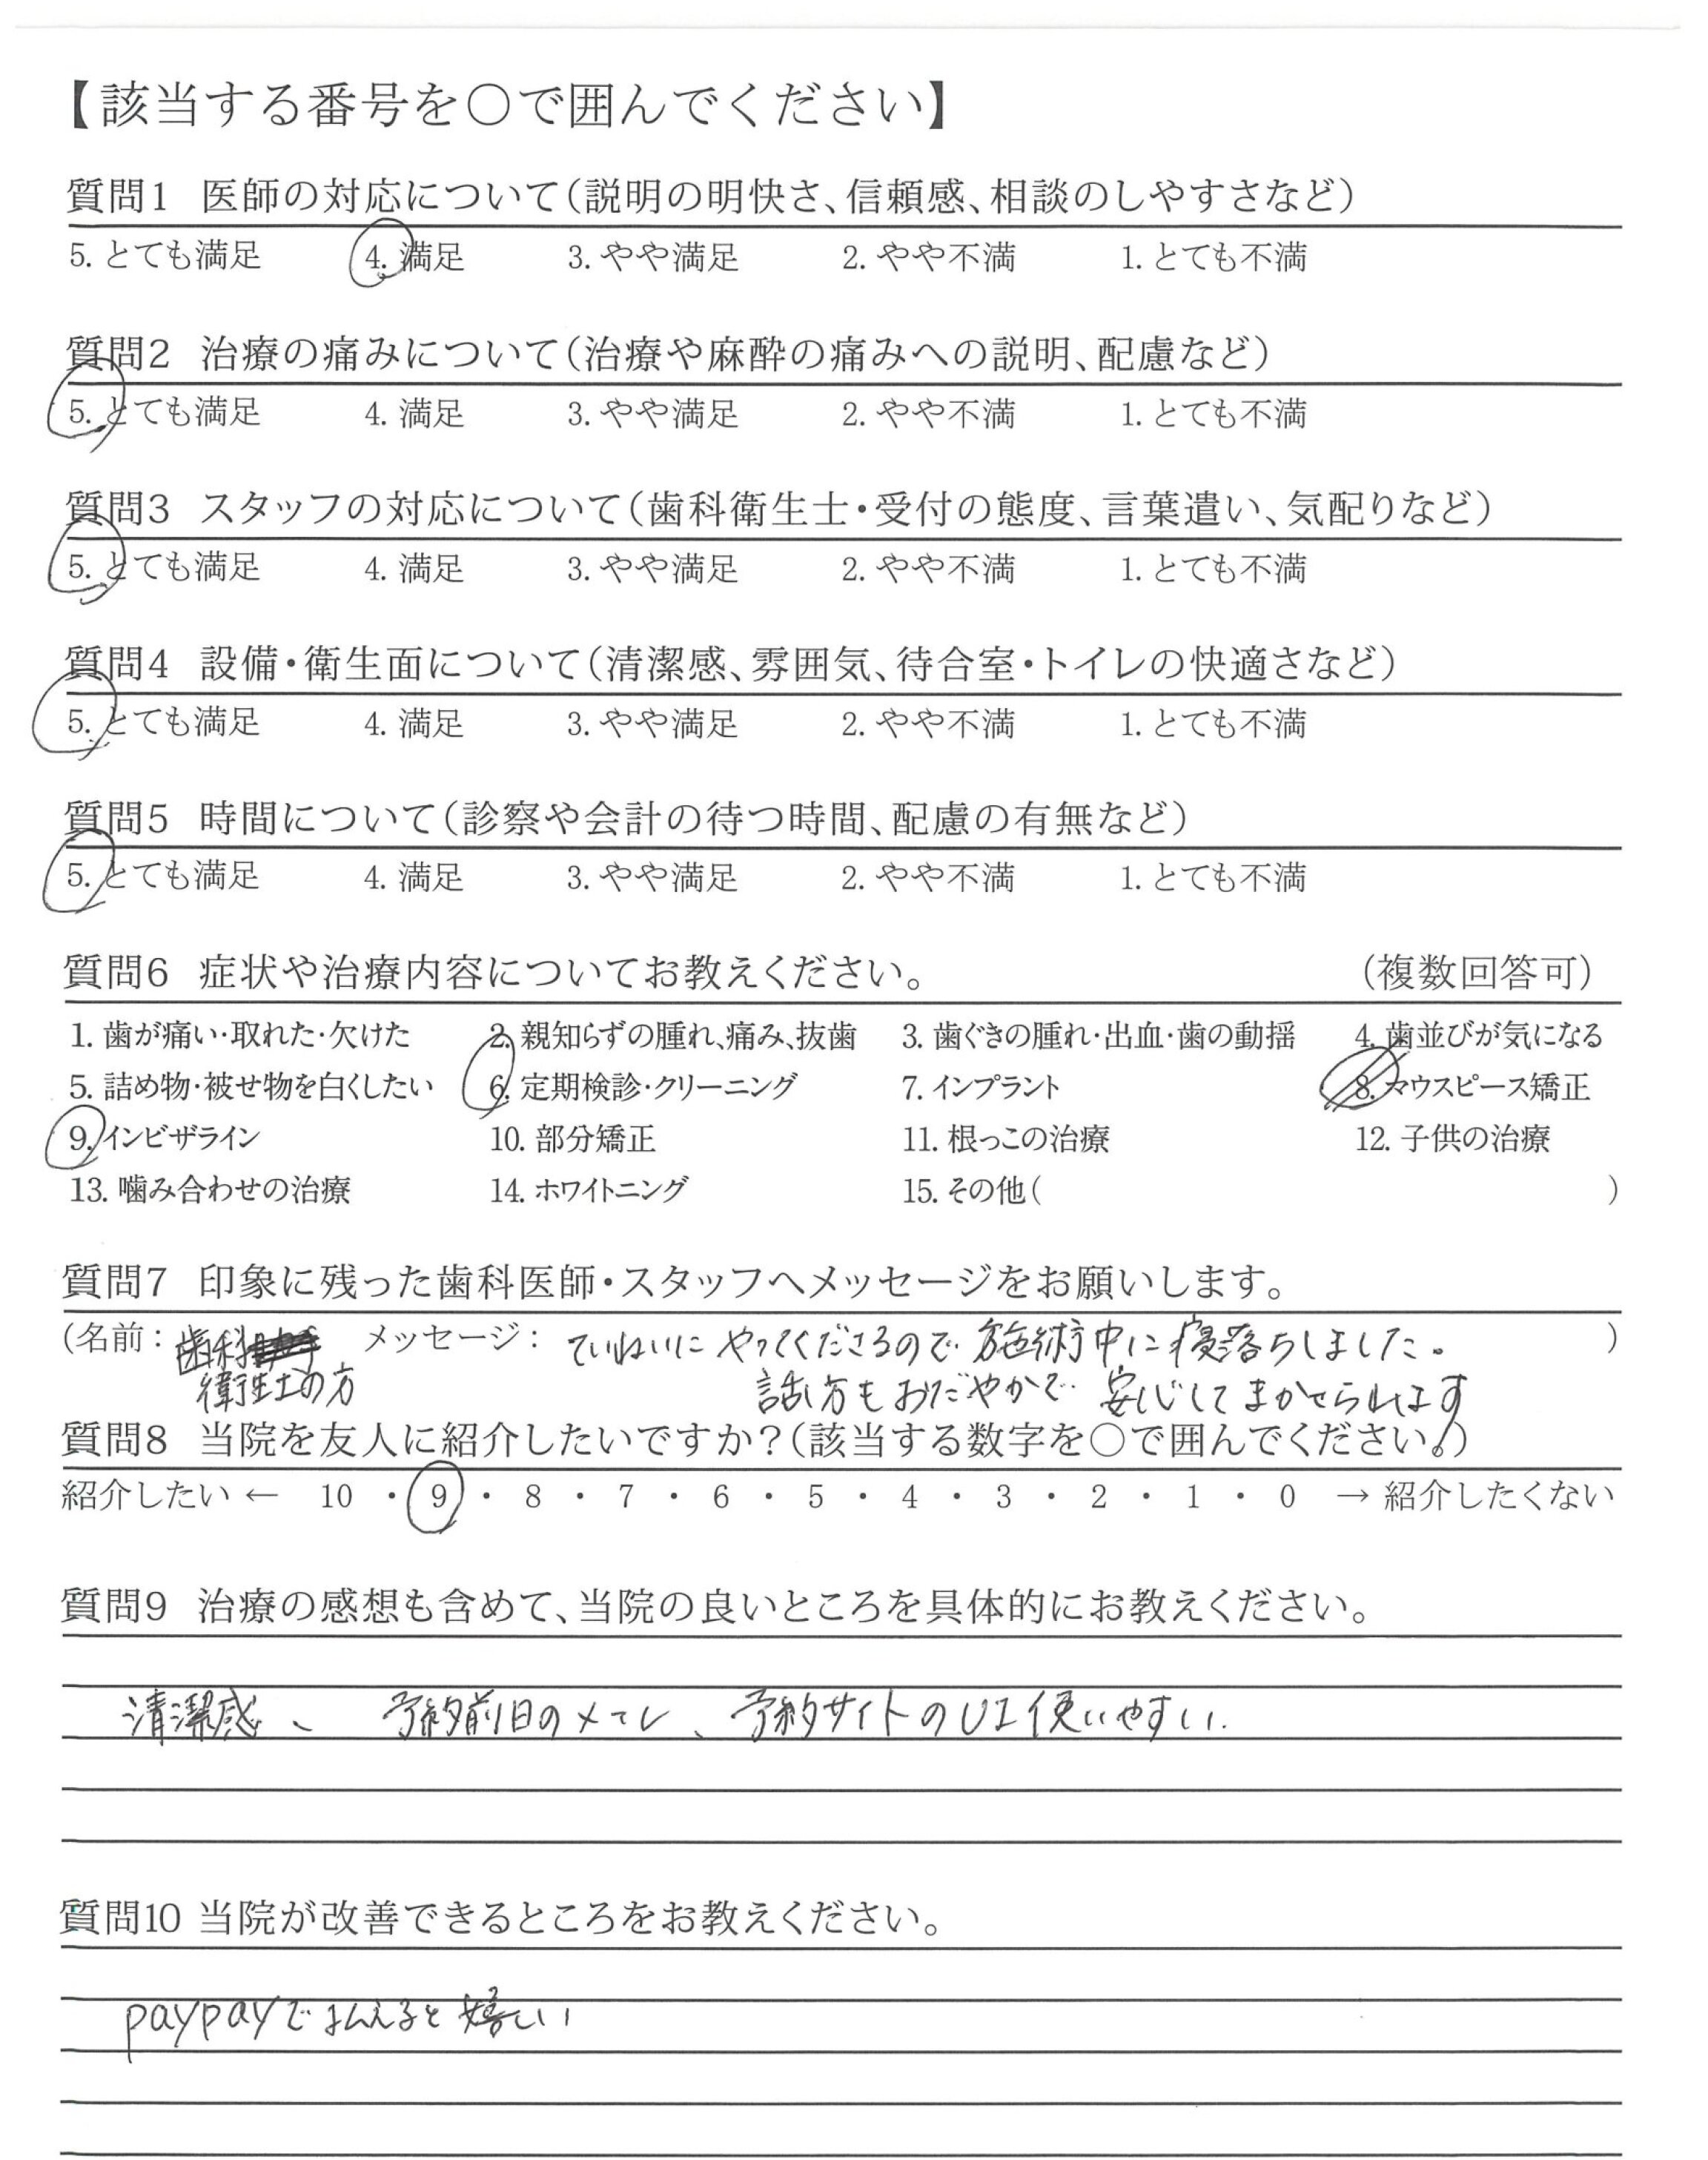 【該当する番号を○で囲んでください】
質問1 医師の対応について(説明の明快さ、信頼感、相談のしやすさなど)
5. とても満足 4. 満足 3. やや満足 2. やや不満 1. とても不満
質問2 治療の痛みについて(治療や麻酔の痛みへの説明、配慮など)
5. とても満足 4. 満足 3. やや満足 2. やや不満 1. とても不満
質問3 スタッフの対応について(歯科衛生士・受付の態度、言葉遣い、気配りなど)
5. とても満足 4. 満足 3. やや満足 2. やや不満 1. とても不満
質問4 設備・衛生面について(清潔感、雰囲気、待合室・トイレの快適さなど)
5. とても満足 4. 満足 3. やや満足 2. やや不満 1. とても不満
質問5 時間について(診察や会計の待つ時間、配慮の有無など)
5. とても満足 4. 満足 3. やや満足 2. やや不満 1. とても不満
質問6 症状や治療内容についてお教えください。 (複数回答可)
1. 歯が痛い・取れた・欠けた 2. 親知らずの腫れ、痛み、抜歯 3. 歯ぐきの腫れ・出血・歯の動揺 4. 歯並びが気になる
5. 詰め物・被せ物を白くしたい 6. 定期検診・クリーニング 7. インプラント 8. マウスピース矯正
9. インビザライン 10. 部分矯正 11. 根っこの治療 12. 子供の治療
13. 噛み合わせの治療 14. ホワイトニング 15. その他( )
質問7 印象に残った歯科医師・スタッフへメッセージをお願いします。
(名前: 歯科 メッセージ: ていねいにやってくださるので施術中に寝落ちしました。 )
衛生士の方 話し方もおだやかで安心してまかせられます
質問8 当院を友人に紹介したいですか?(該当する数字を○で囲んでください。)
紹介したい ← 10 ・ 9 ・ 8 ・ 7 ・ 6 ・ 5 ・ 4 ・ 3 ・ 2 ・ 1 ・ 0 → 紹介したくない
質問9 治療の感想も含めて、当院の良いところを具体的にお教えください。
清潔感、 予約前日のメール、予約サイトのUI使いやすい.
質問10 当院が改善できるところをお教えください。
paypayで払えると嬉しい